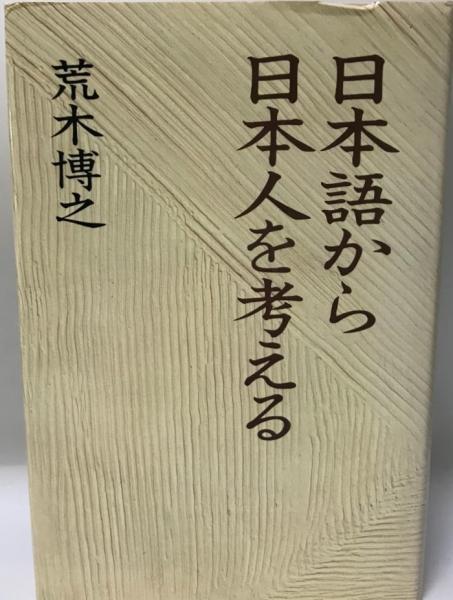 日本語から
日本人を考える
荒木博之